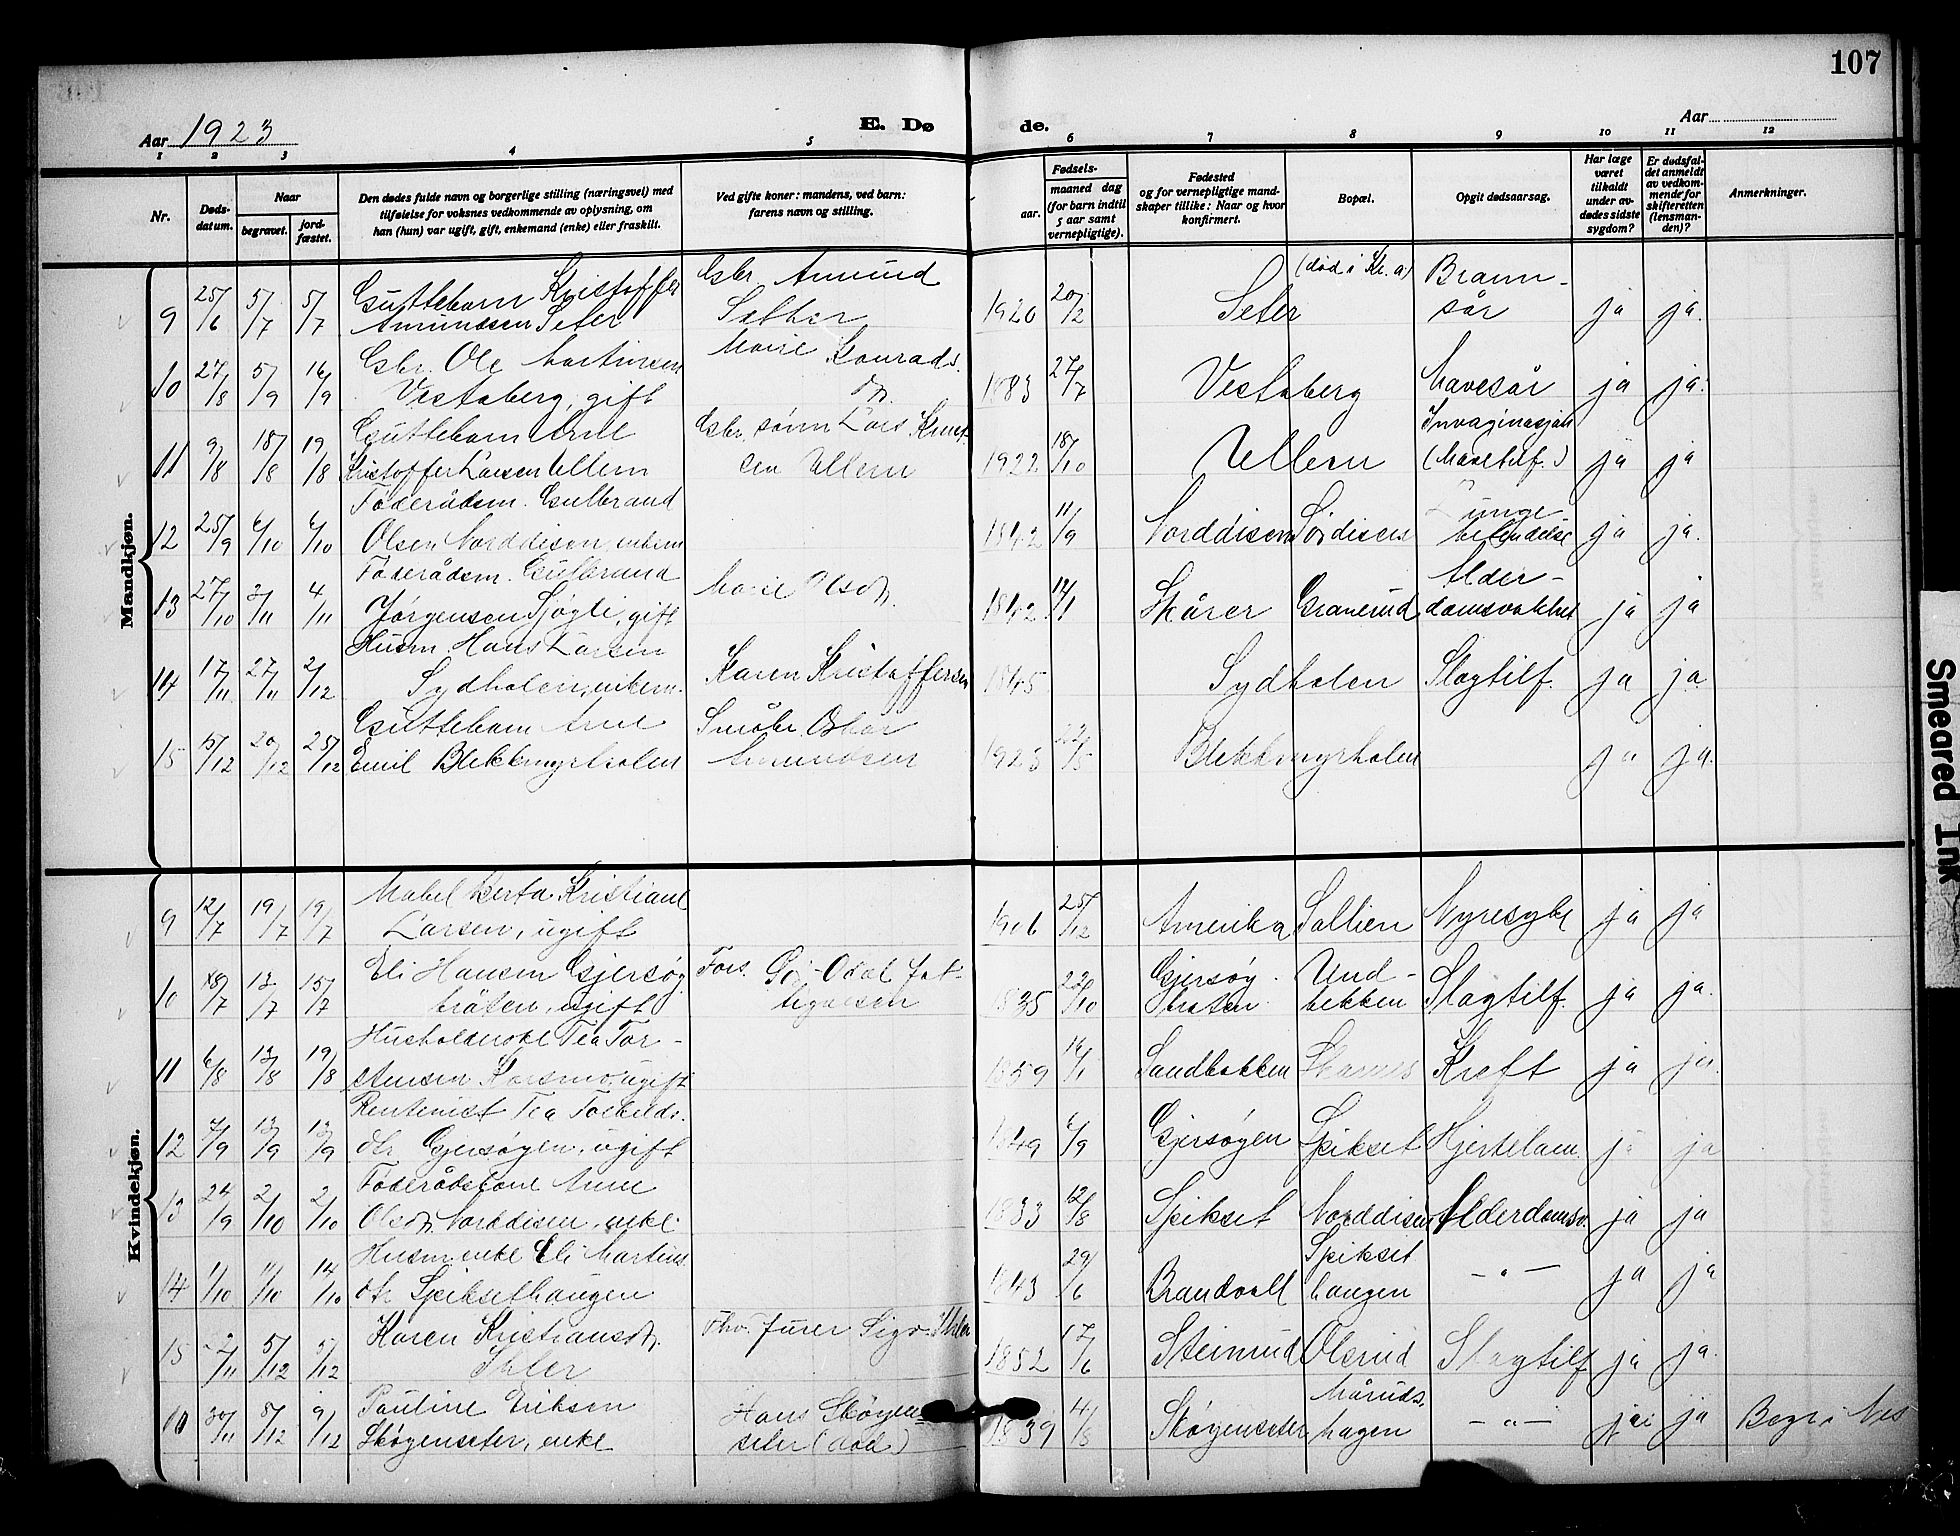 107
Aar 1923
E. Dø
de.
Aar
1 2 3 4 5 6 7 8 9 10 11 12
Nr.
Dødsdatum.
Naar
begravet.
jordfæstet.
Den dødes fulde navn og borgerlige stilling (næringsvei) med
tilføielse for voksnes vedkommende av oplysning, om
han (hun) var ugift, gift, enkemand (enke) eller fraskilt.
Ved gifte koner: mandens, ved barn:
farens navn og stilling.
Fødsels-
aar.
maaned dag
(for barn indtil
5 aar samt
vernepligtige).
Fødested
og for vernepligtige mand-
skaper tillike: Naar og hvor
konfirmert.
Bopæl.
Opgit dødsaarsag.
Har læge
været
tilkaldt
under av-
dødes sidste
sygdom?
Er dødsfal-
det anmeldt
av vedkom-
mende for
skifteretten
(lensman-
den)?
Anmerkninger.
Mandkjøn.
9 25/6 5/7 5/7 Guttebarn Kristoffer Amundsen Seter Gbr. Amund Sæther 1920 20/2 Seter (død i Kr.a) Brannsår ja ja.
10 27/8 5/9 16/9 Gbr. Ole Martinsen Vestaberg, gift Marie Konradsdtr. 1883 27/7 Vestaberg Mavesår ja ja.
11 9/8 18/8 19/8 Guttebarn Arne Kristoffer Larsen Ullern Gbr. sønn Lars Knutsen Ullern 1922 18/10 Ullern Invaginasjon (Mavetilf.) ja ja
12 25/9 6/10 6/10 Føderådsm. Gulbrand Olsen Norddisen, enkem 1842 11/9 Norddisen Sørdisen Lungebetendelse ja ja.
13 27/10 3/11 4/11 Føderådsm. Gulbrand Jørgensen Sjøgli, gift Marie Olsdtr. 1842 12/1 Skårer Granerud Alderdomsvakhet ja ja
14 17/11 27/11 2/12 Husm. Hans Larsen Sydholen, enkem. Karen Kristoffersen 1845 Sydholen Slagtilf. ja ja.
15 15/12 20/12 25/12 Guttebarn Arne Emil Blekkmyrholen Småbr. Oskar Amundsen 1923 22/5 Blekkmyrholen ja ja.
Kvindekjøn.
9 12/7 19/7 19/7 Mabel Berta Kristiane Larsen, ugift 1906 25/12 Amerika Sollien Nyresyke ja ja
10 8/7 13/7 15/7 Eli Hansen Gjersøgbråten, ugift Fors. 1835 22/10 Gjersøgbråten Undbekken Slagtilf. ja ja.
11 6/8 13/8 19/8 Husholderske Tea Torstensen Korsmo, ugift 1859 16/1 Sandbakken Kreft ja ja.
12 7/9 13/9 13/9 Rentenist Tea Torkildsdtr. Gjersøgen, ugift 1849 6/9 Gjersøgen Spikset Hjertelam. ja ja
13 24/9 2/10 2/10 Føderådskone Anne Olsdtr. Norddisen, enke. 1833 12/8 Spikset Norddisen Alderdomsv. ja ja
14 1/10 11/10 14/10 Husm.enke Eli Martinsdtr. Spiksethaugen 1843 29/6 Brandvoll Spiksethaugen -"- ja ja
15 2/11 5/12 5/12 Karen Kristiansdtr. Ihler 1852 17/6 Steinrud Olsrud Slagtilf ja ja.
16 30/11 8/12 9/12 Pauline Eriksen Skøgenseter, enke Hans Skøgenseter (død) 1839 4/8 Skøgenseter Mårudshagen -"- nei ja Begr. i Nes
Smeared Ink